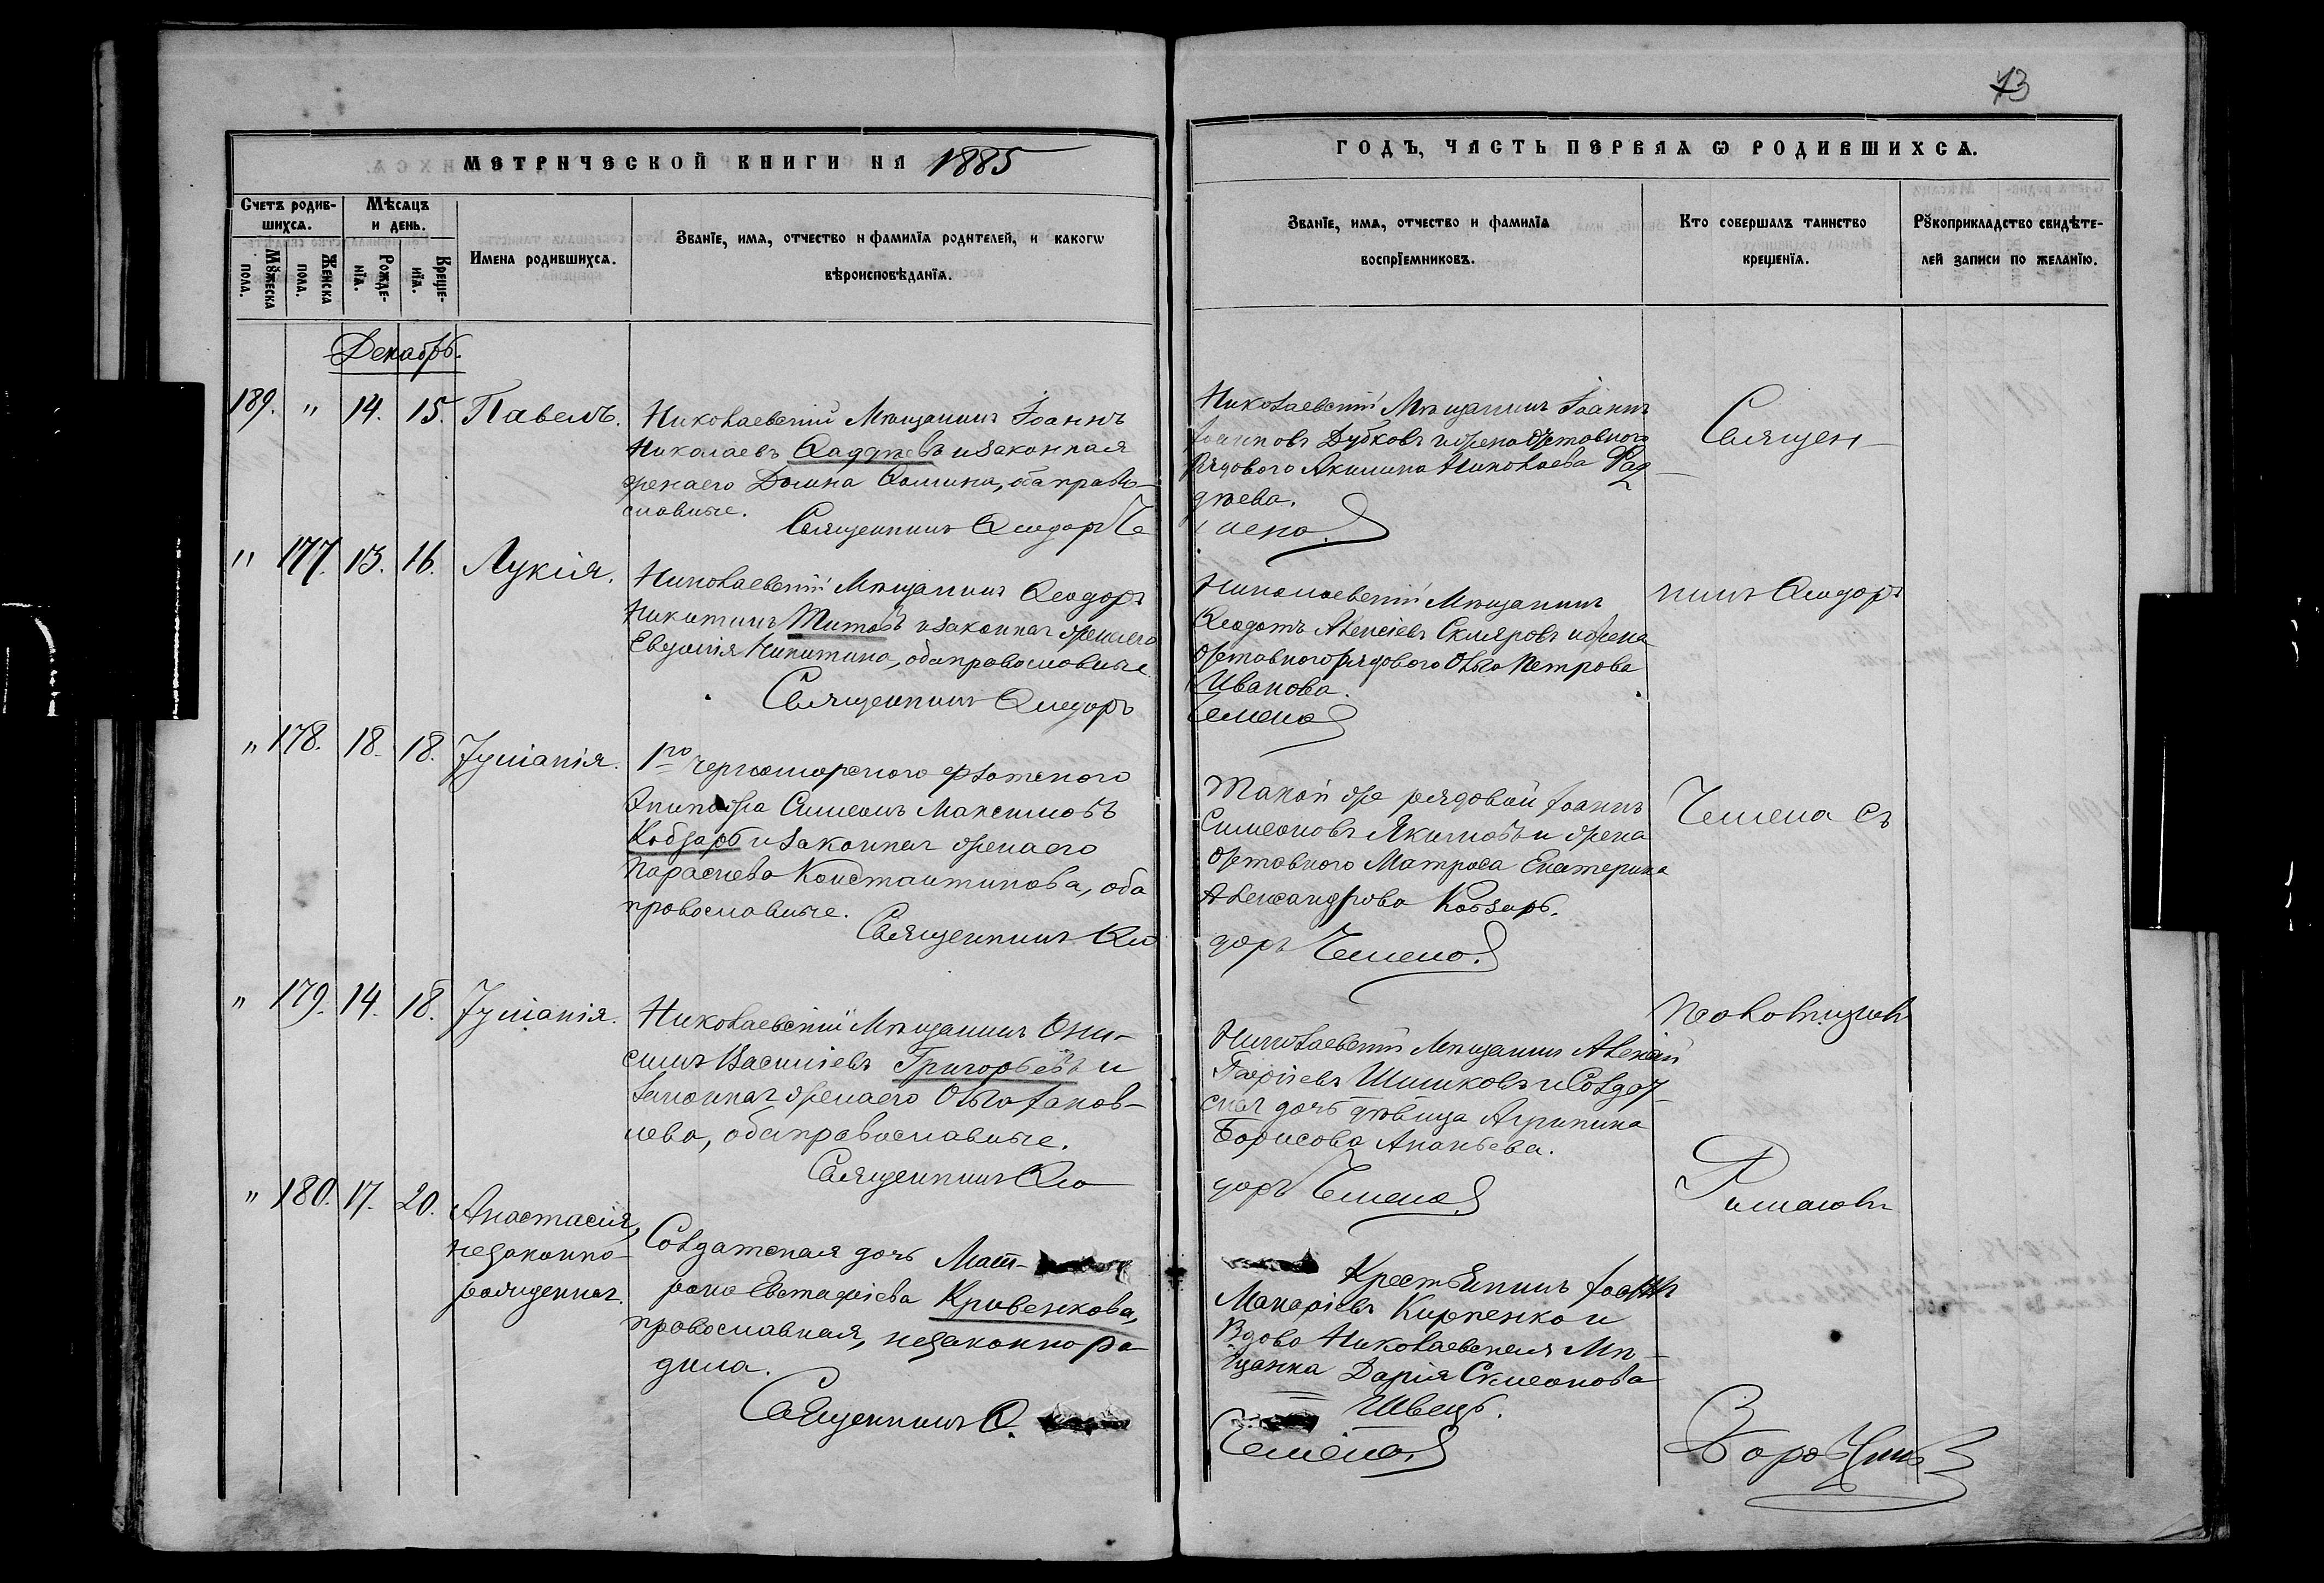 73
МЕТРИЧЕСКОЙ КНИГИ НА 1885
ГОДЪ, ЧАСТЬ ПЕРВАЯ Ѡ РОДИВШИХСѦ.
Счетъ родив-
шихсѧ.
Мѣсѧцъ
и день.
Мꙋжеска
пола.
Женска
пола.
Рожде-
нїѧ.
Креще-
нїѧ.
Имена родившихсѧ.
Званїе, имѧ, отчество и фамилїѧ родителей, и какогѡ
вѣроисповѣданїѧ.
Званїе, имѧ, отчество и фамилїѧ
воспрїемниковъ.
Кто совершалъ таинство
крещенїѧ.
Рꙋкоприкладство свидѣте-
лей записи по желанїю.
Декабрь.
189. " 14. 15. Павелъ.
Николаевскій Мѣщанинъ Іоаннъ
Николаевъ Ѳаддѣевъ и законная
жена его Домна Ѳомина, оба право-
славные.
Священникъ Ѳеодоръ Че
Николаевскій Мѣщанинъ Іоаннъ
Іоанновъ Дубковъ и жена отставного
рядового Акилина Николаева Фад-
дѣева.
мена
Священ-
" 177. 13. 16. Лукія.
Николаевскій Мѣщанинъ Ѳеодоръ
Никитинъ Титовъ и законная жена его
Евдокія Никитина, оба православные.
Священникъ Ѳеодоръ
Николаевскій Мѣщанинъ
Ѳеодотъ Алексіевъ Скляровъ и жена
отставного рядового Ольга Петрова
Иванова.
Чемена
никъ Ѳеодоръ
" 178. 18. 18. Іуліанія.
1го Черноморского флотского
Экипажа Симеонъ Максимовъ
Кобзарь и законная жена его
Параскева Константинова, оба
православные.
Священникъ Ѳео
Такой же рядовой Іоаннъ
Симеоновъ Якимовъ и жена
отставного Матроса Екатерина
Александрова Кобзарь.
доръ Чемена.
Чемена съ
" 179. 14. 18. Іуліанія.
Николаевскій Мѣщанинъ Они-
симъ Василіевъ Григорьевъ и
законная жена его Ольга Іаков-
лева, оба православные.
Священникъ Ѳео
Николаевскій Мѣщанинъ Алексій
Шишковъ и Солдат-
ская дочь дѣвица Агрипина
Борисова Ананьева.
доръ Чемена
Псаломщикомъ
" 180. 17. 20. Анастасія,
незаконно-
рожденная.
Солдатская дочь Мат-
рона Евстафіева Кривенкова,
православная, незаконно ро
дила.
Священникъ Ѳ.
Крестьянинъ Іоаннъ
Макаріевъ Кирпенко и
Вдова Николаевская Мѣ-
щанка Дарія Симеонова
Швецъ.
Чемена.